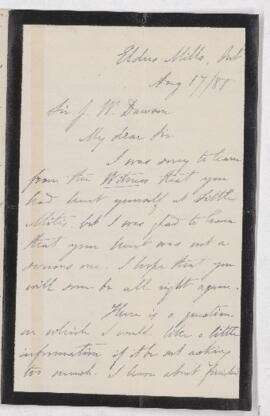 Elders Mills, Ont
Aug 17/88
Sir J. W. Dawson
My dear Sir
I was sorry to learn
from the Witness that you
had hurt yourself at Little
Metis, but I was glad to learn
that your hurt was not a
serious one. I hope that you
will soon be all right again.
There is a question
on which I would like a little
information if it be not asking
too much. I have about finished